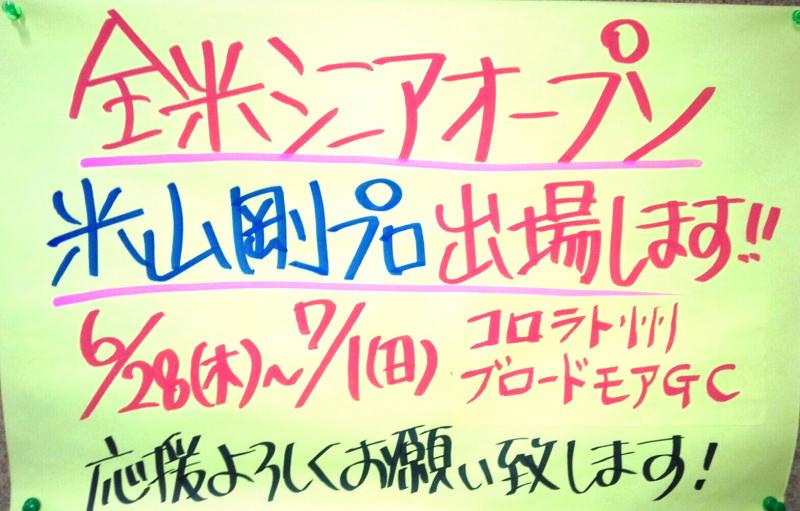 全米シニアオープン
米山剛プロ出場します!!
6/28(木)~7/1(日)
コロラト州
ブロードモアGC
応援よろしくお願い致します!